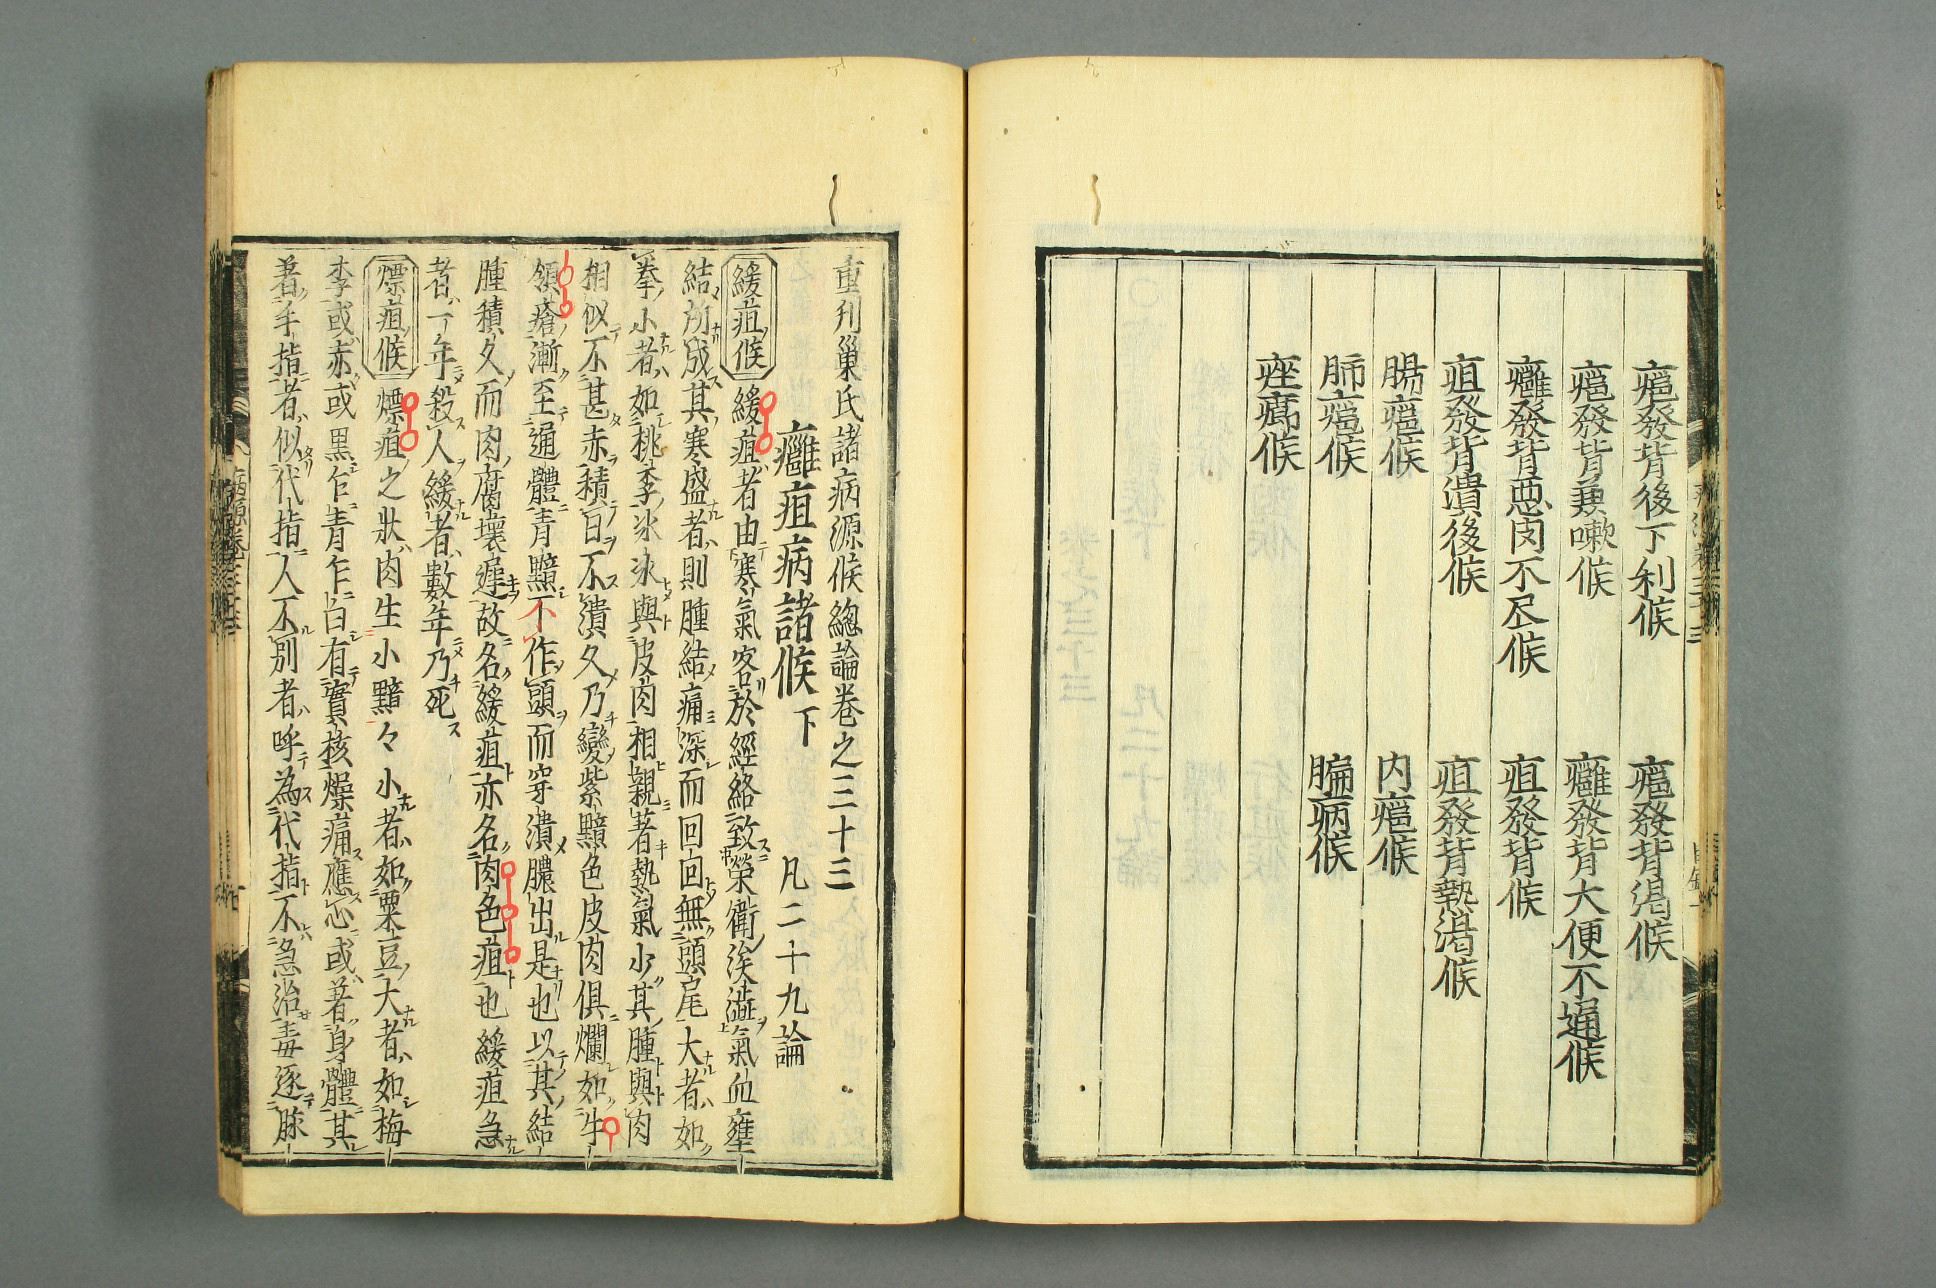 癰發背後下利候　癰發背渴候
癰發背兼嗽候　癰發背大便不通候
癰發背惡肉不尽候　疽發背候
疽發背潰後候　疽發背熱渴候
腸癰候　内癰候
肺癰候　牑病候
痤癤候
重刋巢氏諸病源候總論卷之三十三
癰疽病諸候下　凡二十九論
緩疽候　緩疽者由寒氣客於經絡致榮衞涘澁氣血壅
結所成其寒盛者則腫結痛深而回回無頭尾大者如
拳小者如桃李氷氷與皮肉相親著熱氣少其腫與肉
相似不甚赤積日不潰久乃變紫黯色皮肉俱爛如牛
領瘡漸至通體青黯不作頭而穿潰膿出是也以其結
腫積久而肉腐壞遲故名緩疽亦名肉色疽也緩疽急
者一年殺人緩者數年乃死
熛疽候　熛疽之狀肉生小黯々小者如粟豆大者如梅
李或赤或黒乍青乍白有實核燥痛應心或著身體其
著手指者似代指人不別者呼為代指不急治毒逐脉
病源卷三十三